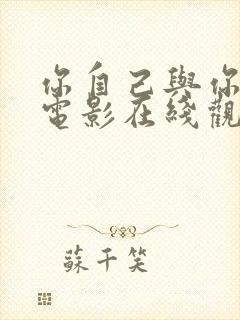 你自己與你
電影在綫觀
蘇千笑